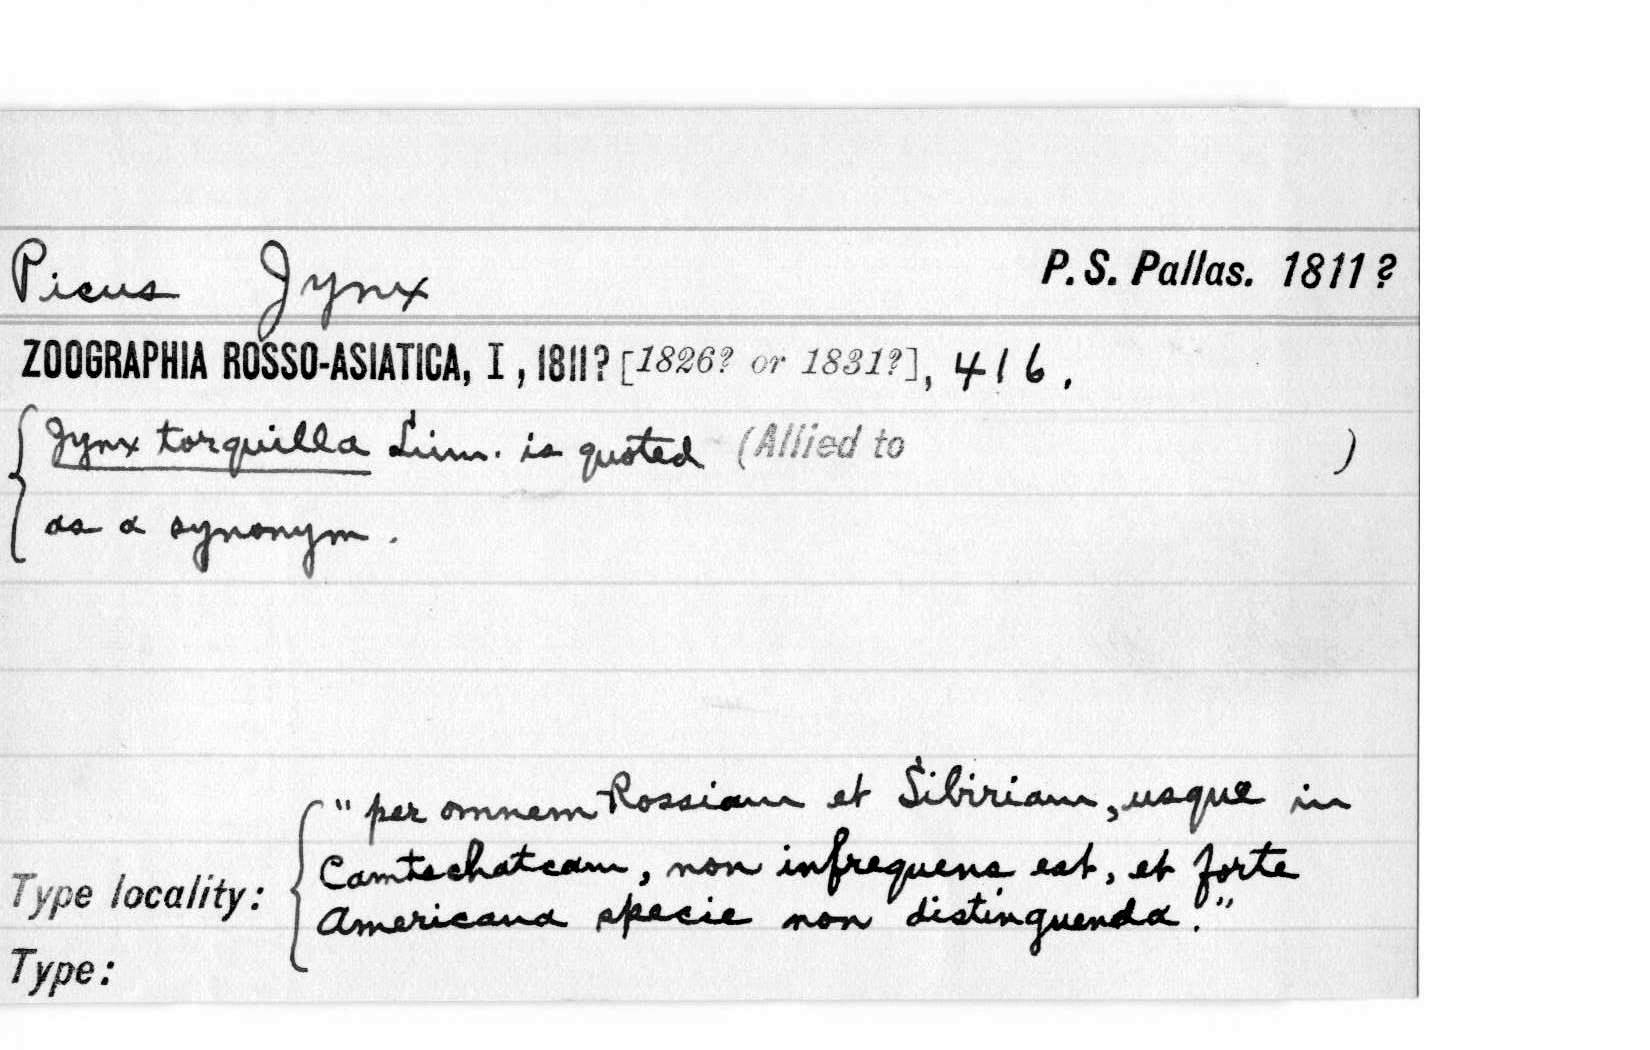 Picus Jynx P. S. Pallas. 1811?
ZOOGRAPHIA ROSSO-ASIATICA, I, 1811? [1826? or 1831?], 416.
{ Jynx torquilla Linn. is quoted (Allied to )
as a synonym.
{ "per omnem Rossiam et Sibiriam, usque in
Type locality: Camtschatcam, non infrequens est, et forte
Americana specie non distinguenda."
Type: